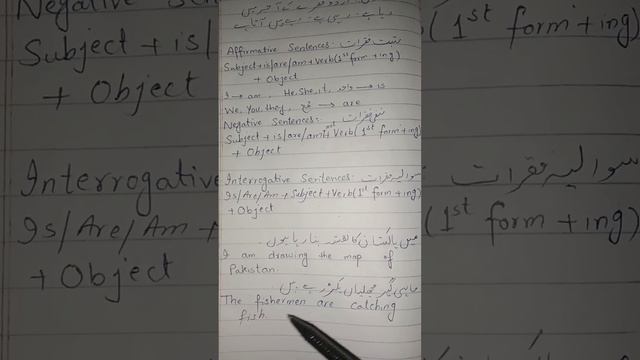 Subject + is/
+ Object
Interrogative
Is/Are/Am +
+ Object
اردو فقرے کے آخر میں
رہا ہے، رہی ہے، رہے ہیں آتا ہے
Affirmative Sentences: مثبت فقرات
Subject+is/are/am+Verb(1st form+ing)
+ Object
I → am, He, She, it, واحد → is
We, You, they, جمع → are
Negative Sentences: منفی فقرات
Subject + is/are/am+not+Verb(1st form+ing)
+ Object
Interrogative Sentences: سوالیہ فقرات
Is/Are/Am + Subject + Verb(1st form+ing)
+ Object
میں پاکستان کا نقشہ بنا رہا ہوں۔
I am drawing the map of
Pakistan.
ماہی گیر مچھلیاں پکڑ رہے ہیں
The fishermen are catching
fish.
(1st form + ing)
سوالیہ فقرات
(1st form + ing)